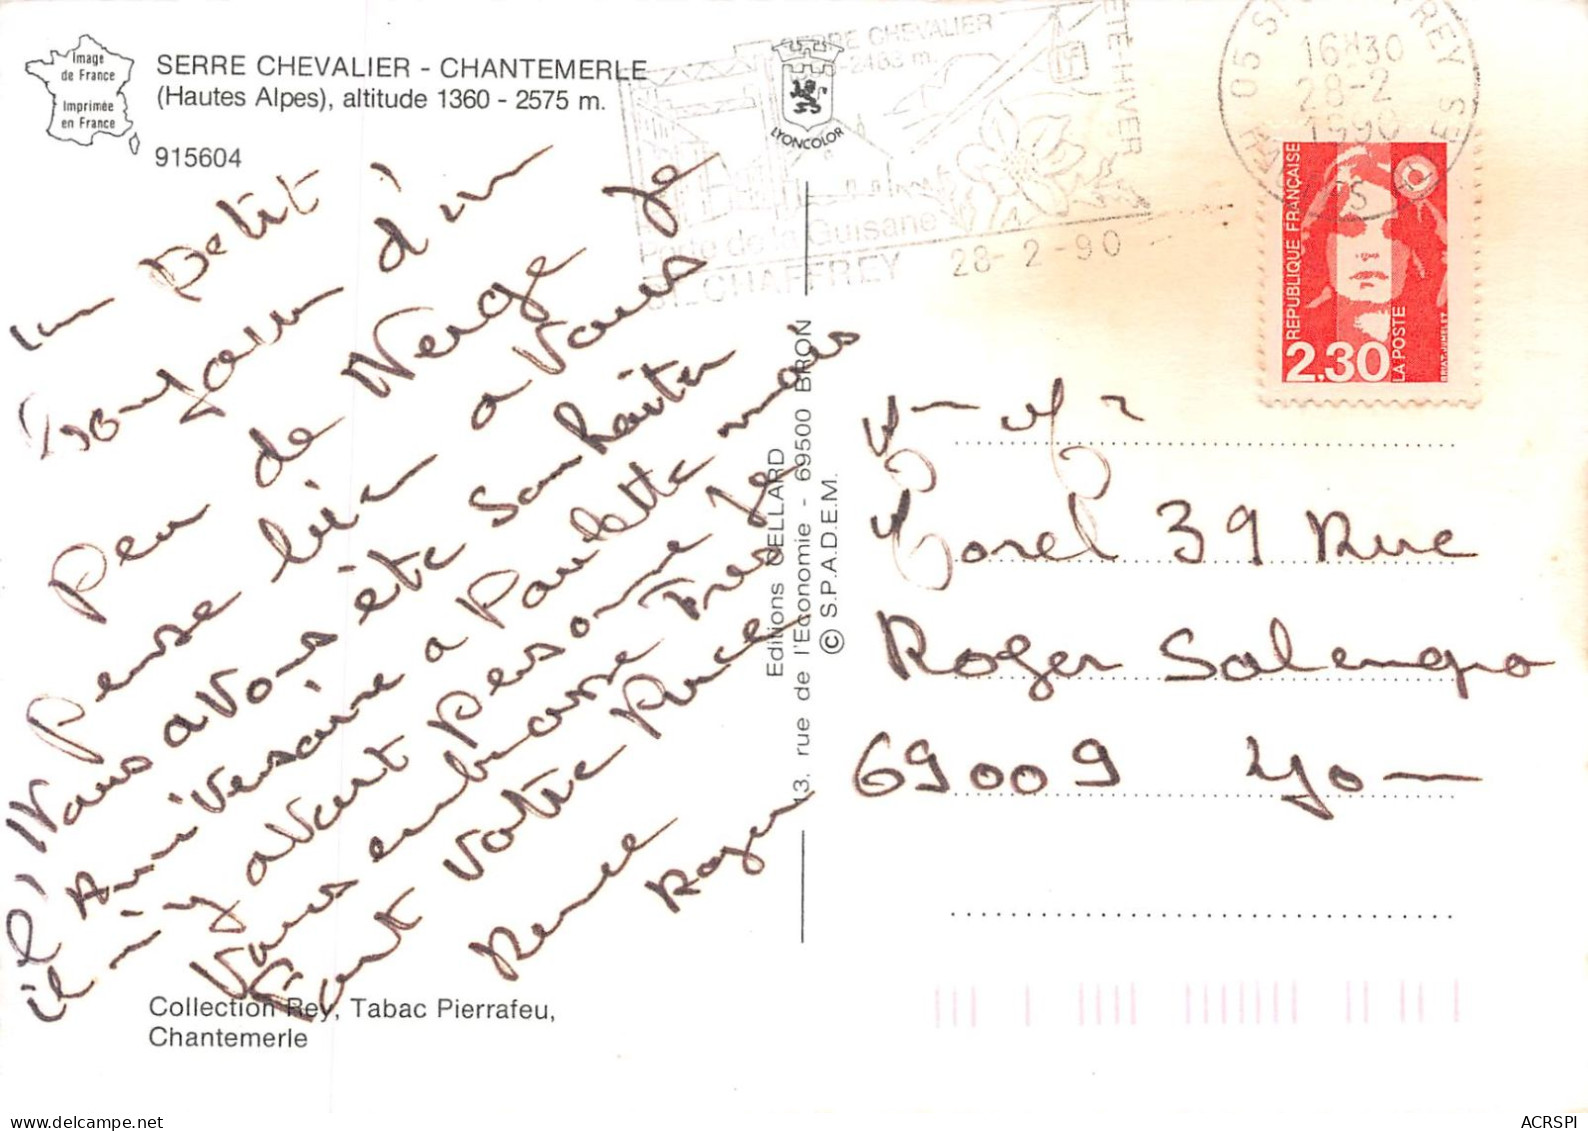 Image
de France
Imprimée
en France
SERRE CHEVALIER - CHANTEMERLE
(Hautes Alpes), altitude 1360 - 2575 m.
915604
LYONCOLOR
SERRE CHEVALIER
-2483 m.
ETE-HIVER
Porte de la Guisane
ST. CHAFFREY 28-2-90
16H30
28-2
1990
REPUBLIQUE FRANÇAISE
LA POSTE
2,30
un petit
Bonjour d'un
peu de Neige Je
pense bien a Vous
Nous avons été souhaiter
l'Anniversaire a Paulette mais
il n'y avait personne Je
Vous embrasse Tres
Fort Votre Puce
Renee
Roger
Editions CELLARD
13, rue de l'Economie - 69500 BRON
© S.P.A.D.E.M.
Morel 39 Rue
Roger Salengro
69009 Lyon
Collection Rey, Tabac Pierrafeu,
Chantemerle
ACRSPI